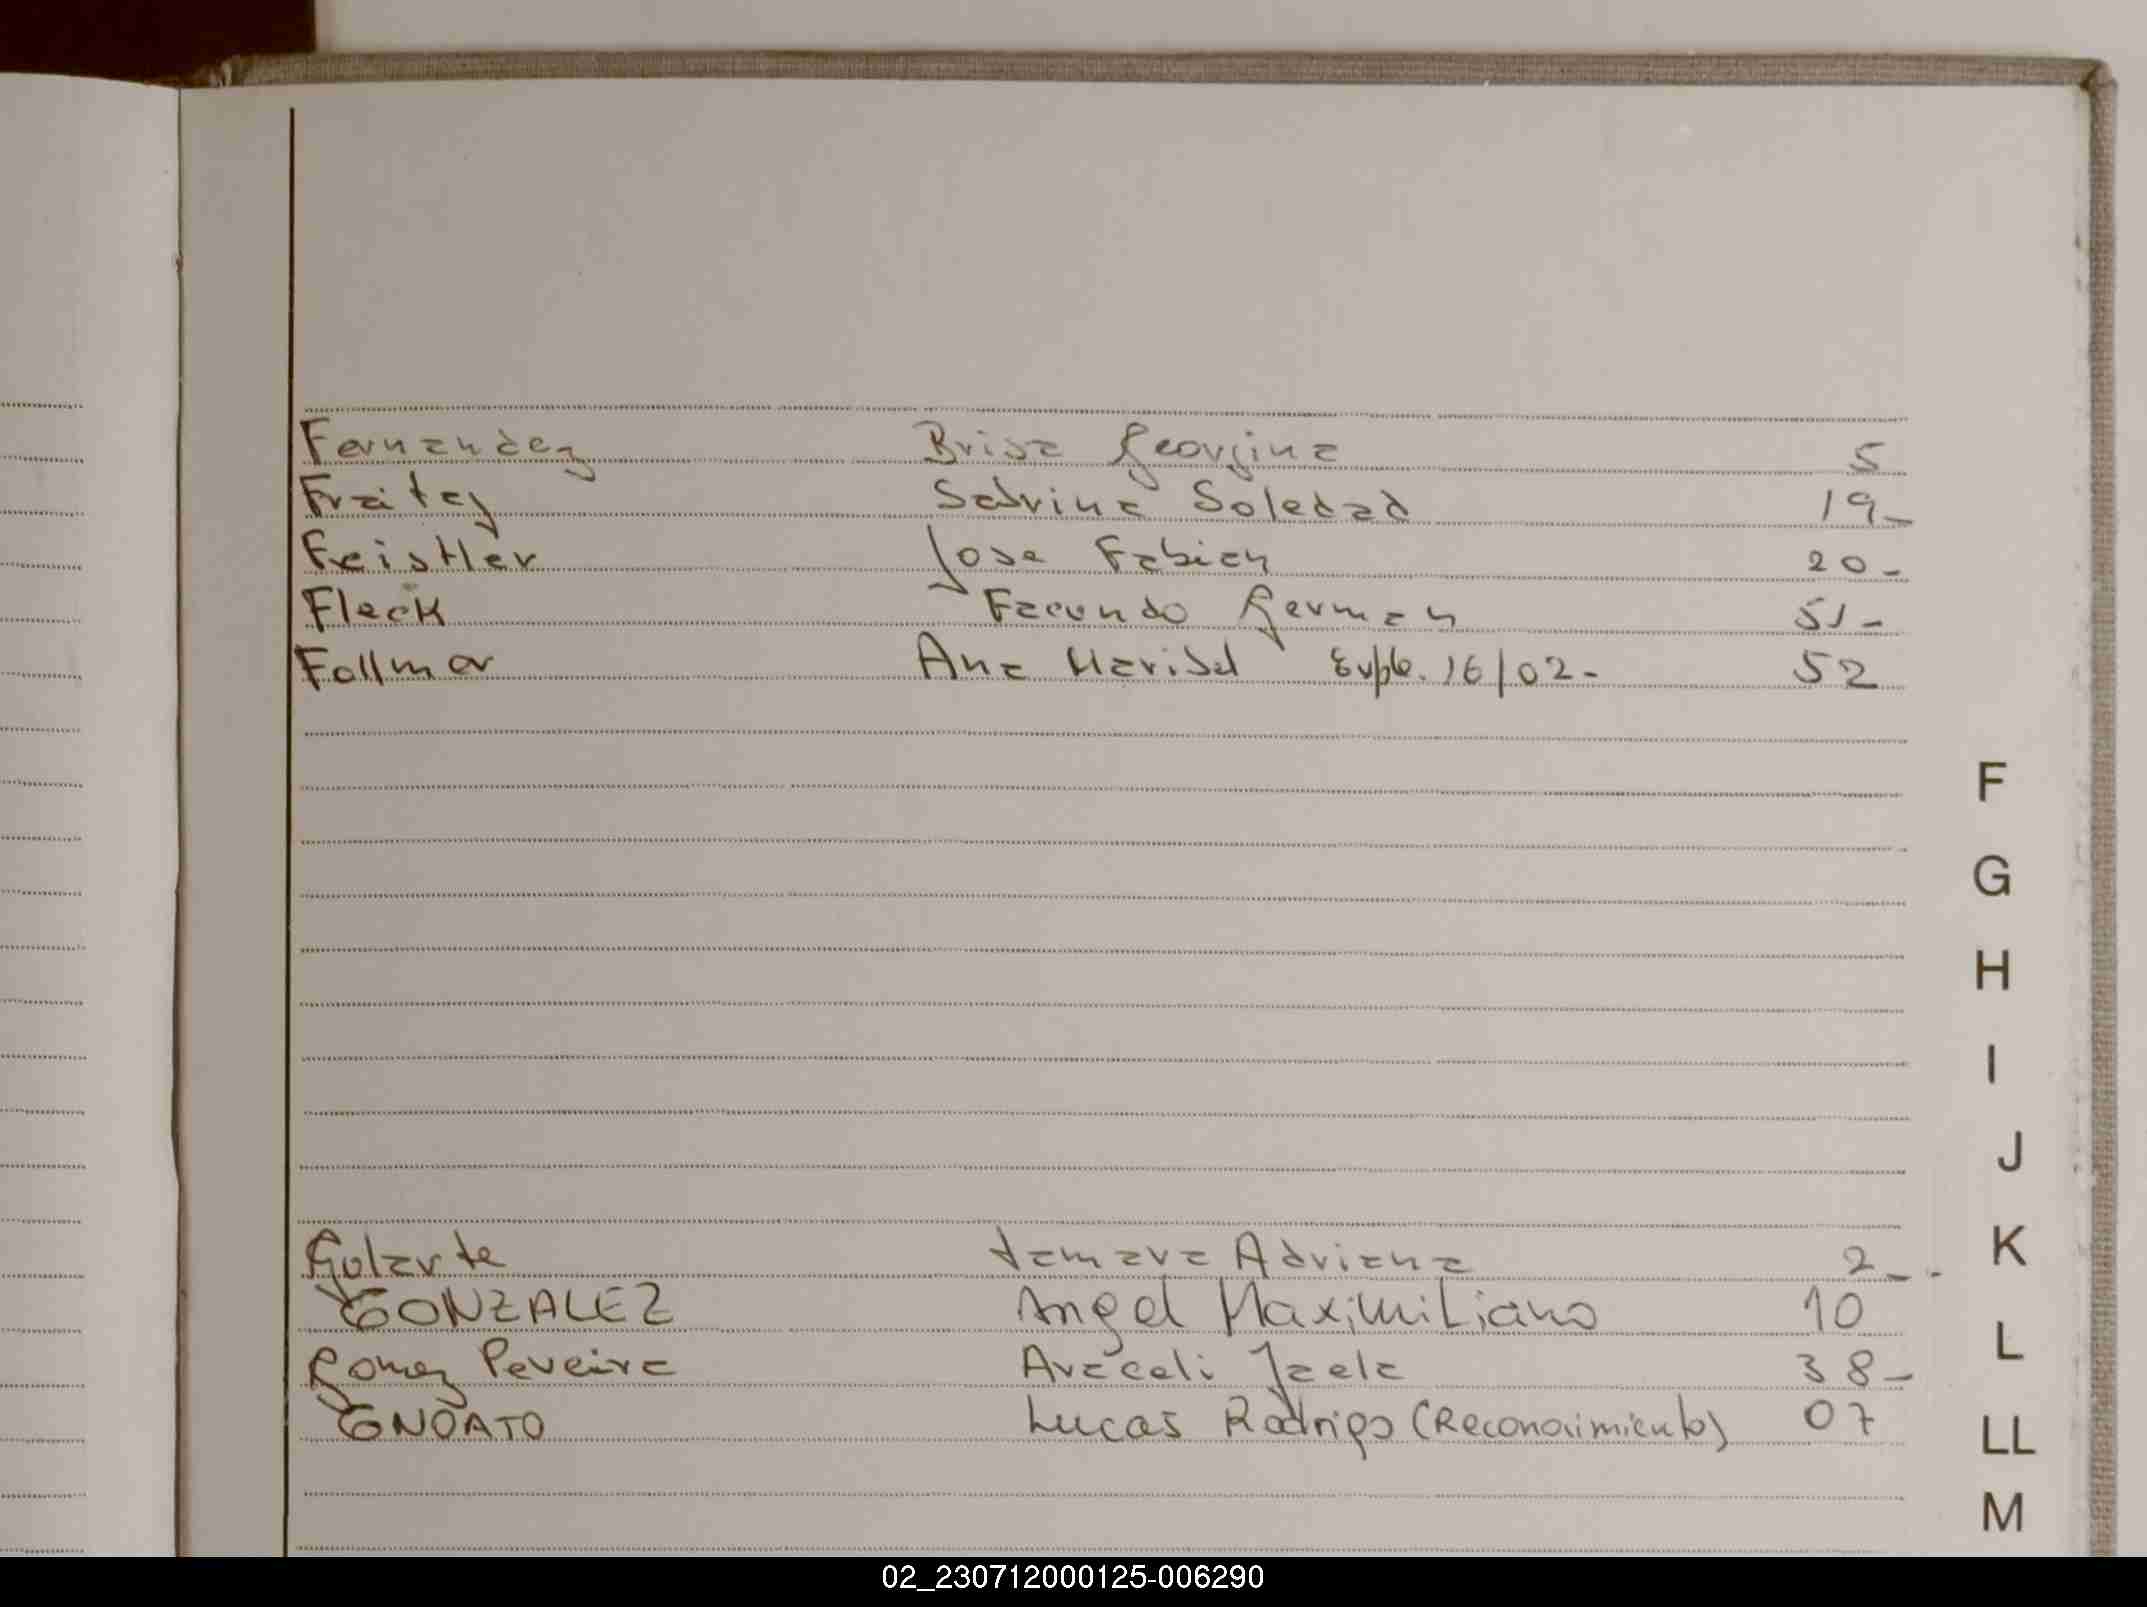 Fernandez Brisa Georgina 5
Freitez Sabrina Soledad 19-
Feistler Jose Fabian 20-
Fleck Facundo German 51-
Follmar Ana Marisel 16/02- 52
F
G
H
I
J
K
L
LL
M
Golarte Tamara Adriana 2-
GONZALEZ Angel Maximiliano 10
Gomez Pereira Araceli Izela 38-
GNOATO Lucas Rodrigo (Reconocimiento) 07
02_230712000125-006290